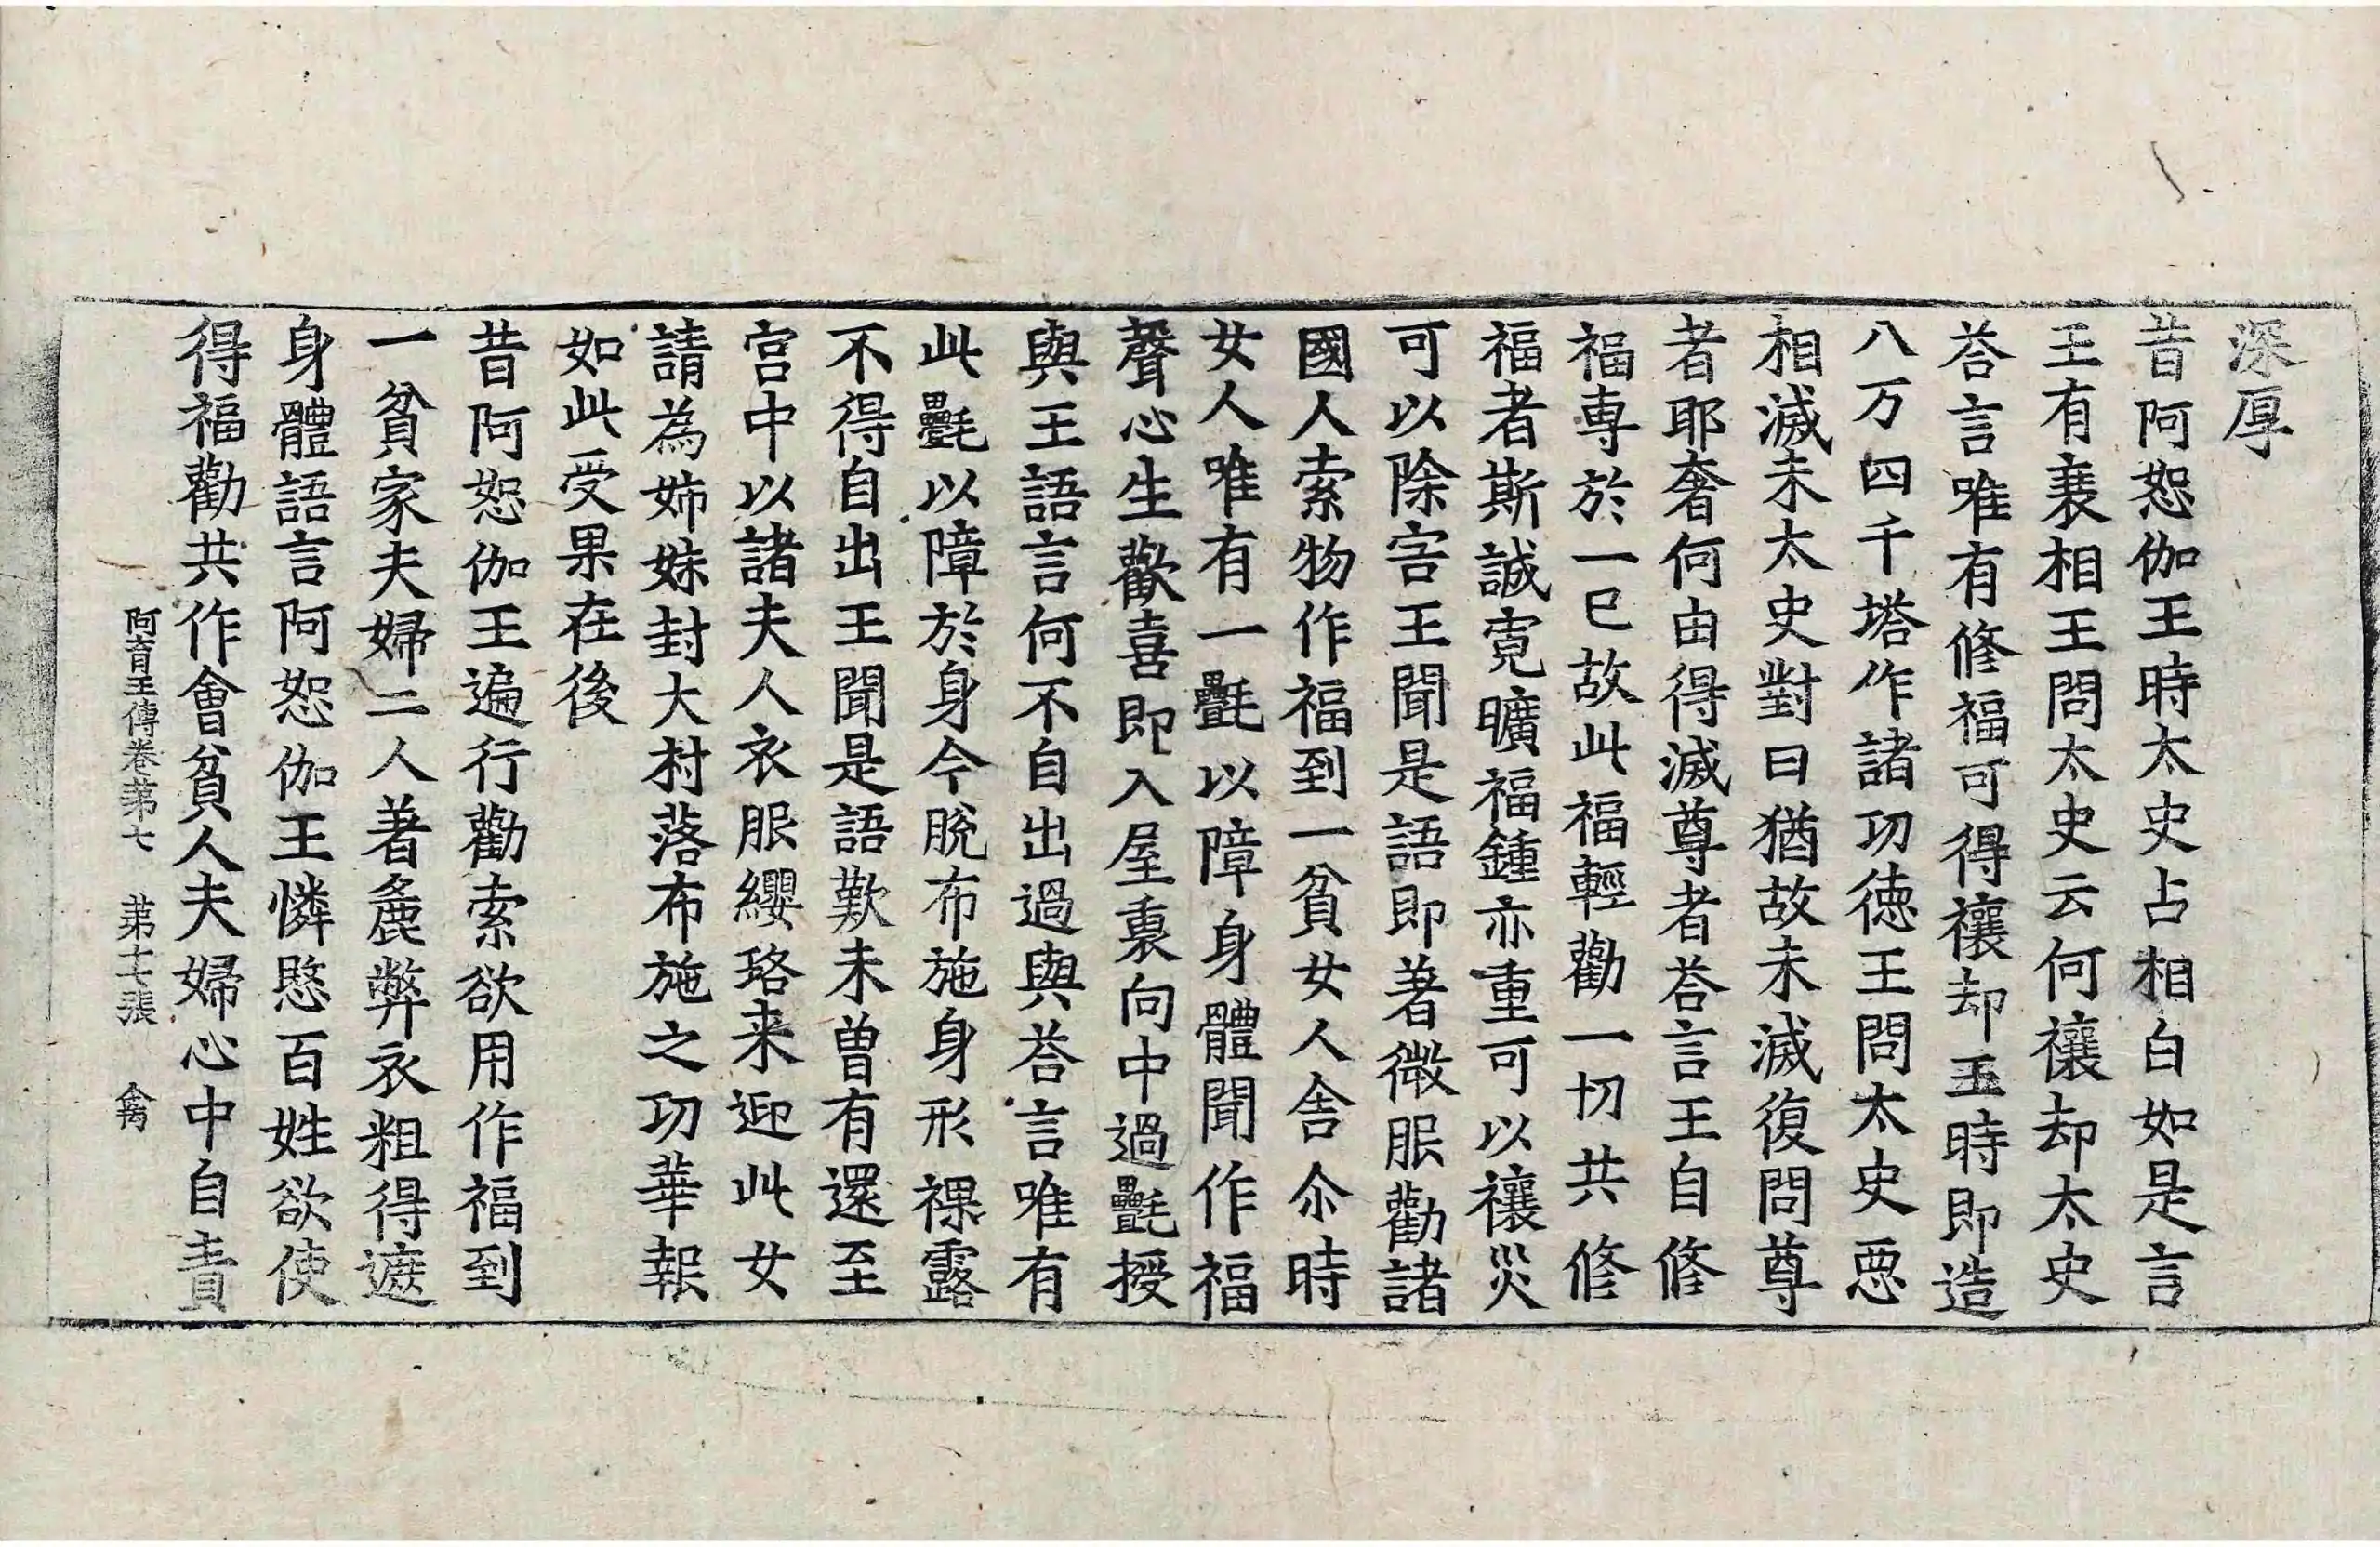 深厚
昔阿恕伽王時太史占相白如是言
王有衰相王問太史云何禳却太史
荅言唯有修福可得禳却王時即造
八万四千塔作諸功徳王問太史惡
相滅未太史對曰猶故未滅復問尊
者耶奢何由得滅尊者荅言王自修
福專於一已故此福輕勸一切共修
福者斯誠寬曠福鍾亦重可以禳災
可以除害王聞是語即著微服勸諸
國人索物作福到一貧女人舍尒時
女人唯有一㲲以障身體聞作福
聲心生歡喜即入屋裏向中過㲲授
與王語言何不自出過與荅言唯有
此㲲以障於身今脫布施身形裸露
不得自出王聞是語歎未曽有還至
宮中以諸夫人衣服纓珞来迎此女
請為姉妹封大村落布施之功華報
如此受果在後
昔阿恕伽王遍行勸索欲用作福到
一貧家夫婦二人著麁弊衣粗得遮
身體語言阿恕伽王憐愍百姓欲使
得福勸共作會貧人夫婦心中自責
阿育王傳卷第七　第十七張　禽